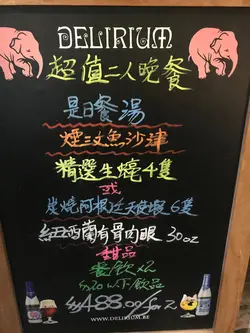 DELIRIUM
超值二人晚餐
是日餐湯
煙三文魚沙律
精選生蠔4隻
或
炭燒阿根廷天使蝦 6隻
紐西蘭有骨肉眼 30oz
甜品
餐飲 x2
$488 for 2
WWW.DELIRIUM.BE